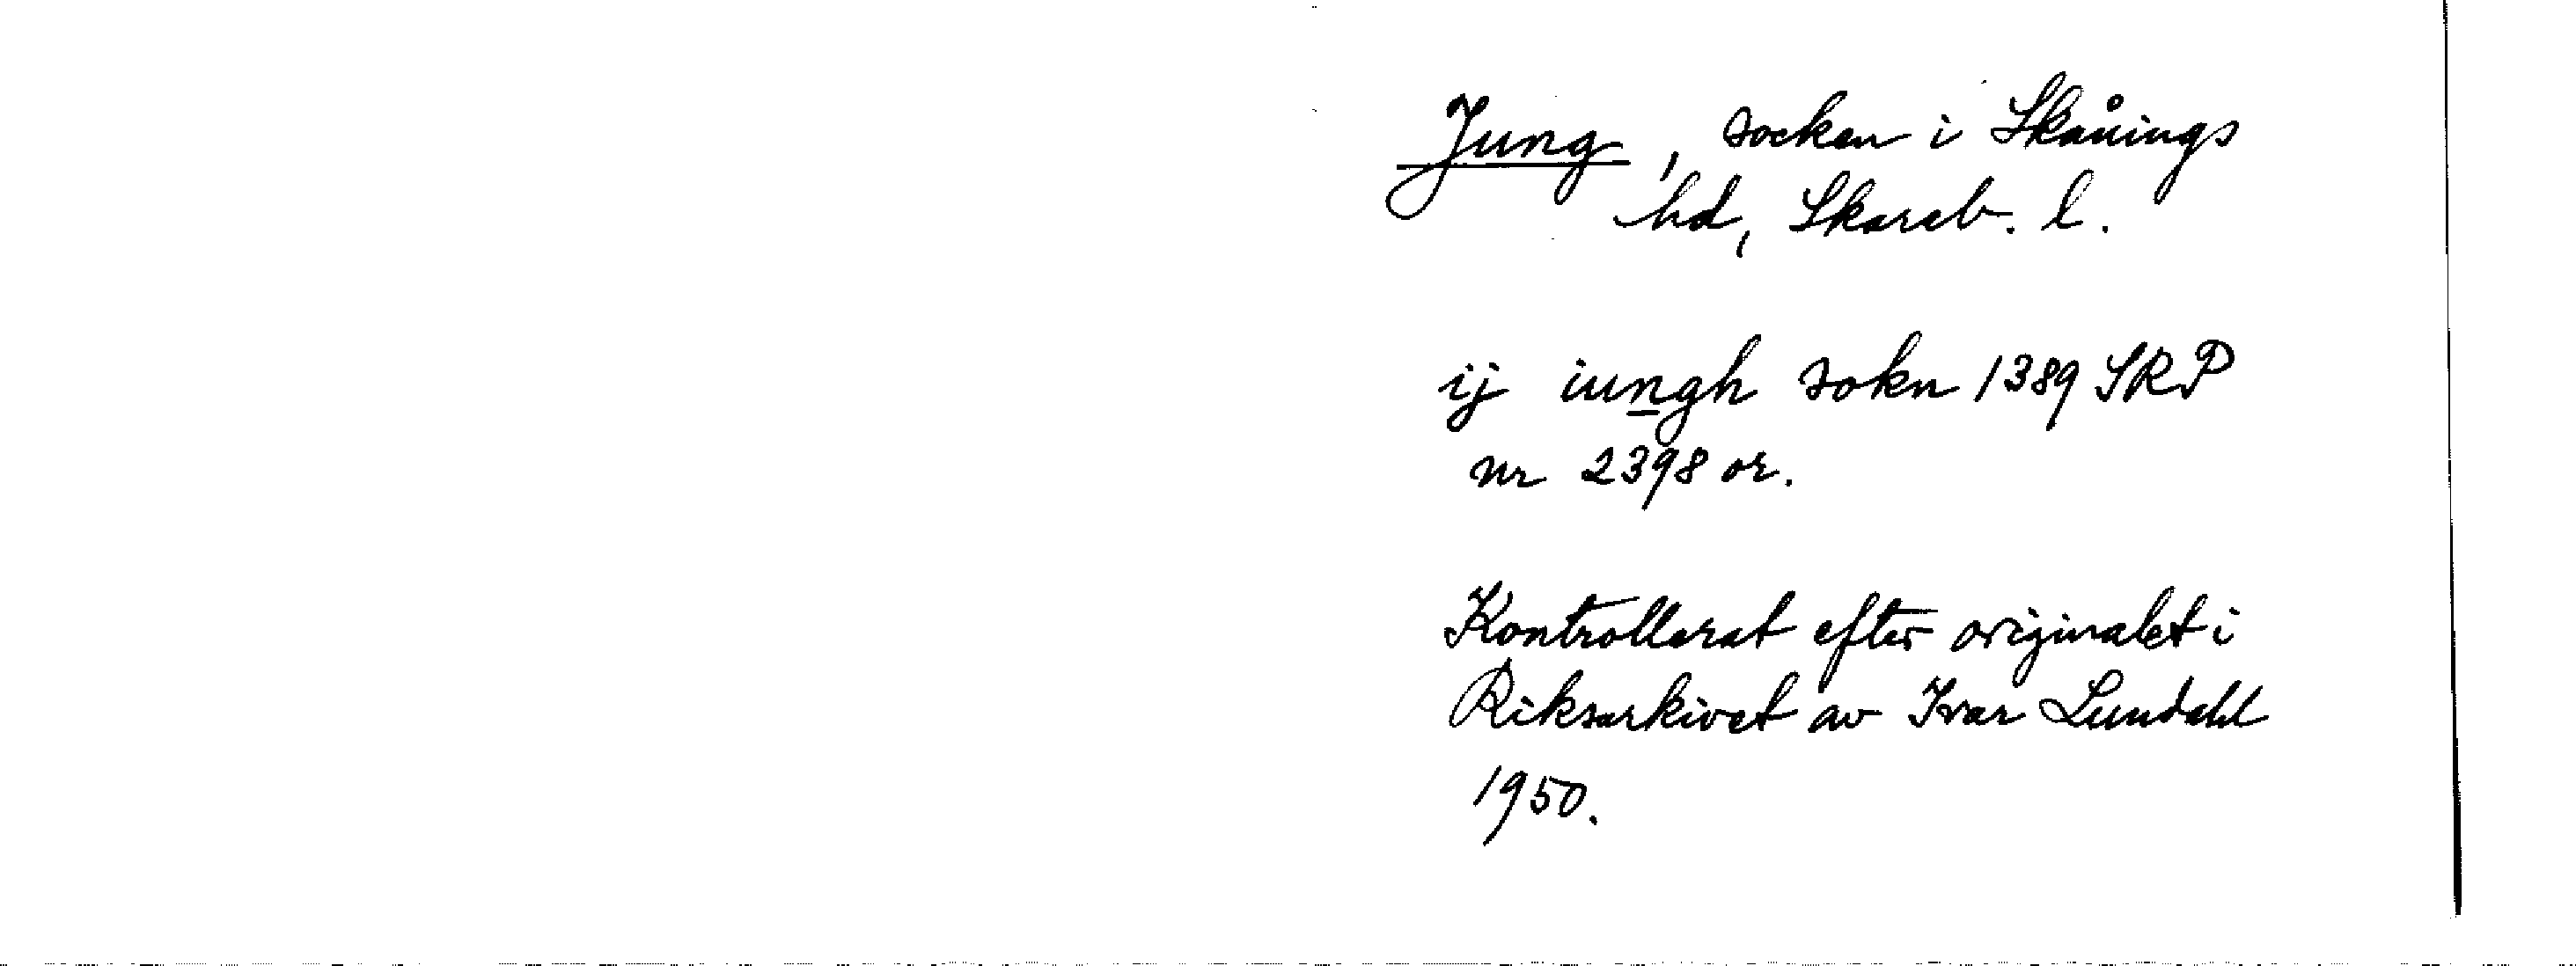 Jung, socken i Skånings
hd, Skarab. l.
ij iungh sokn 1389 SRP
nr 2398 or.
Kontrollerat efter originalet i
Riksarkivet av Ivar Lundahl
1950.